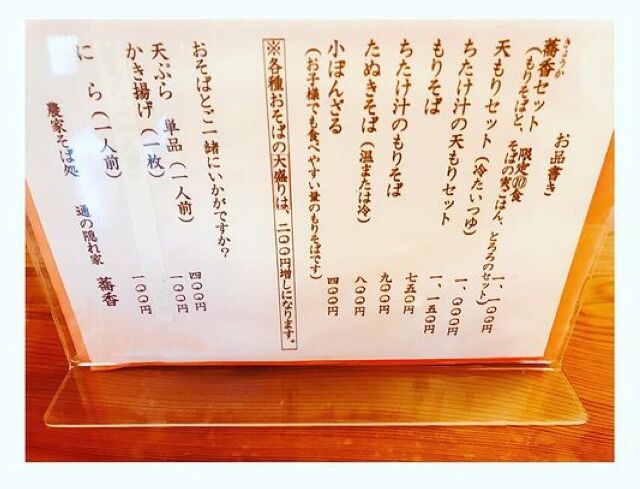 お品書き
きょうか
蕎香セット 限定⑩食 一、一〇〇円
（もりそばと、そばの実ごはん、とろろのセット）
天もりセット（冷たいつゆ） 一、〇〇〇円
ちたけ汁の天もりセット 一、一五〇円
もりそば 七五〇円
ちたけ汁のもりそば 九〇〇円
たぬきそば（温または冷） 八〇〇円
小ぼんざる 四〇〇円
（お子様でも食べやすい量のもりそばです）
※各種おそばの大盛りは、二〇〇円増しになります。
おそばとご一緒にいかがですか？
天ぷら 単品（一人前） 四〇〇円
かき揚げ（一枚） 一〇〇円
にら（一人前） 一〇〇円
農家そば処 通の隠れ家 蕎香